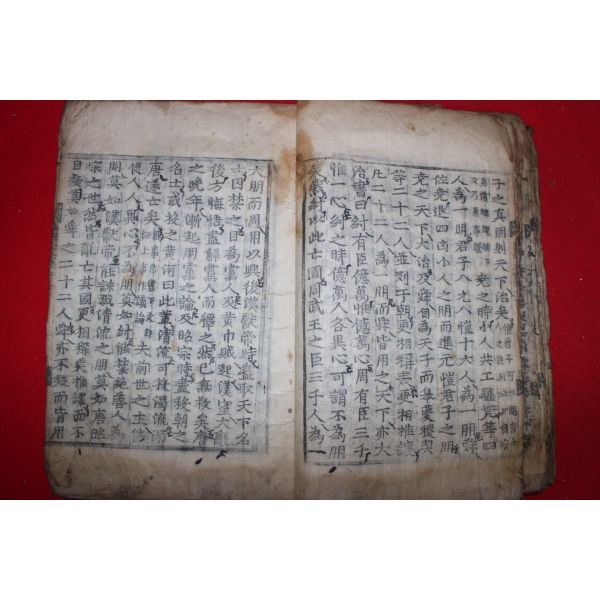 子之真朋則天下治矣
堯之時小人共工驩兜等四
人為一朋君子八元八愷十六人為一朋舜
佐堯退四凶小人之朋而進元愷君子之朋
堯之天下大治及舜自為天子而皐夔稷契
等二十二人並列于朝更相稱美更相推讓
凡二十二人為一朋而舜皆用之天下亦大
治書曰紂有臣億萬惟億萬心周有臣三千
惟一心紂之時億萬人各異心可謂不為朋
矣然紂以此亡國周武王之臣三千人為一
大朋而周用以興後漢獻帝時盡取天下名
士囚禁之目為黨人及黃巾賊起漢室大亂
後方悔悟盡解黨人而釋之然已無救矣唐
之晚年漸起朋黨之論及昭宗時盡殺朝之
名士或投之黃河曰此輩清流可投濁流而
唐遂亡矣夫前世之主能
使人人異心不為朋莫如紂能禁絶善人為
朋莫如漢獻帝能誅戮清流之朋莫如唐昭
宗之世然皆亂亡其國更相稱美推讓而不
自疑莫如舜之二十二人舜亦不疑而皆用